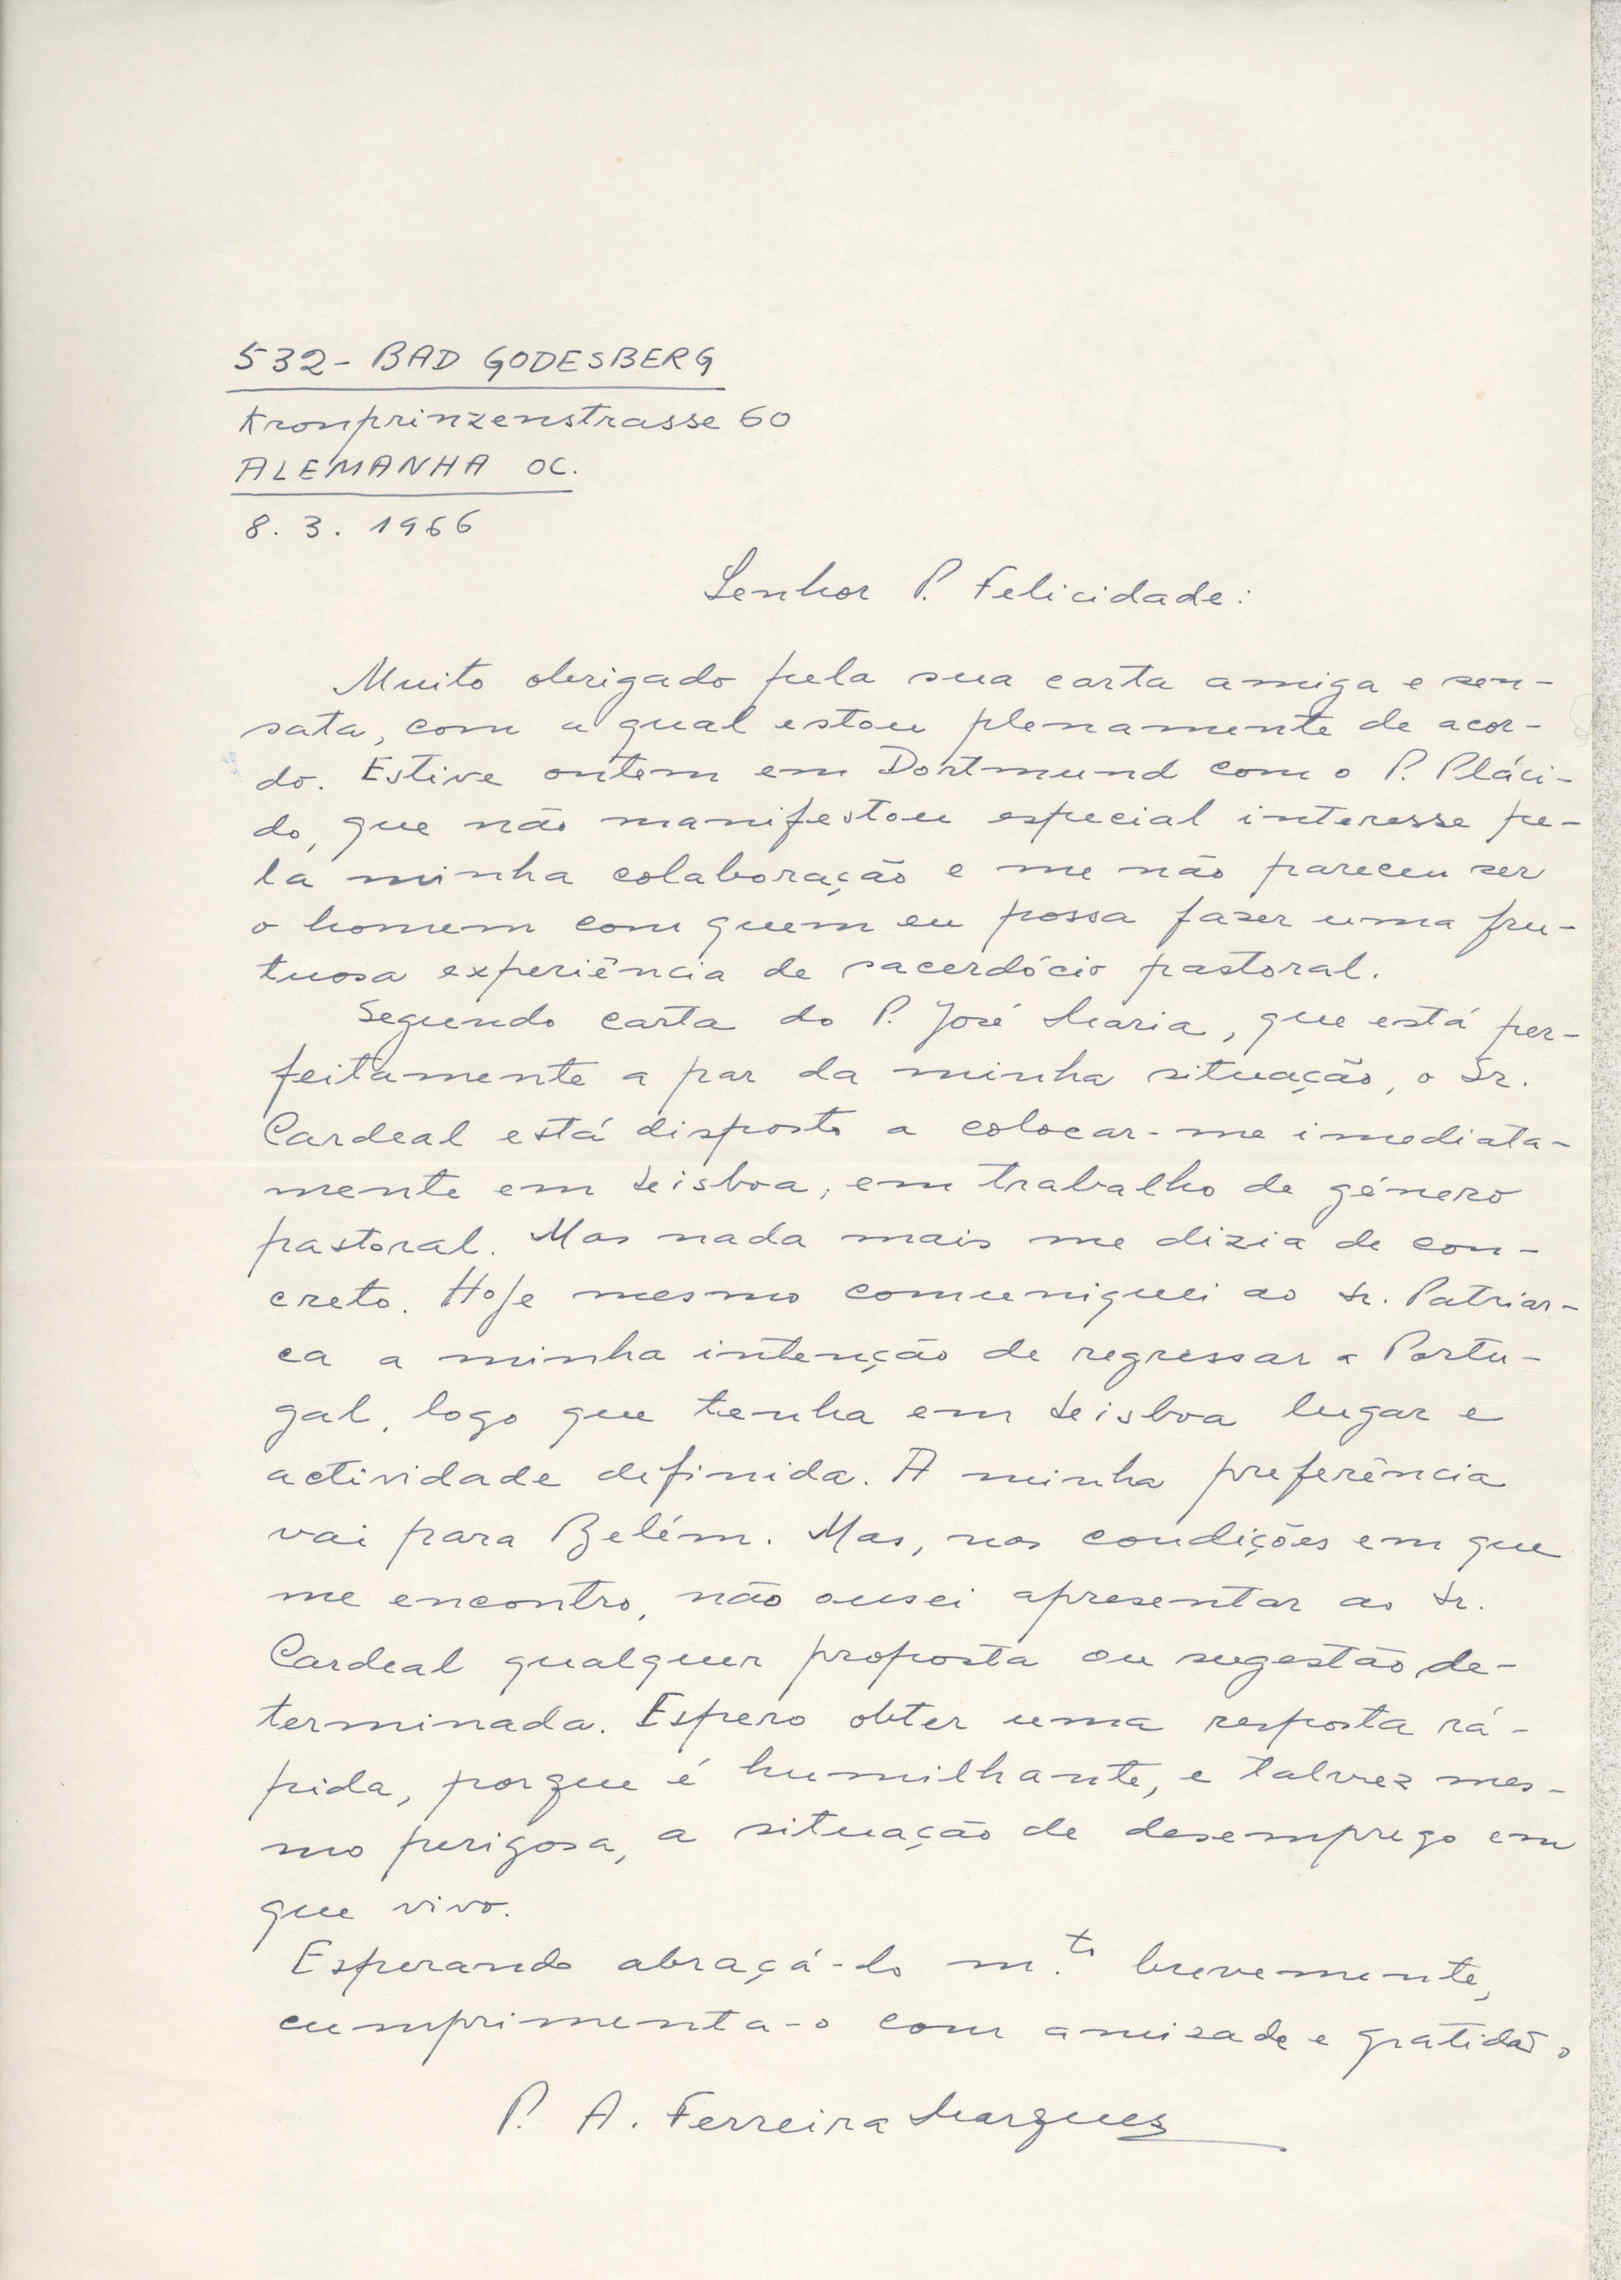 532 - BAD GODESBERG
Kronprinzenstrasse 60
ALEMANHA OC.
8. 3. 1966
Senhor P. Felicidade:
Muito obrigado pela sua carta amiga e sen-
sata, com a qual estou plenamente de acor-
do. Estive ontem em Dortmund com o P. Pláci-
do, que não manifestou especial interesse pe-
la minha colaboração e me não pareceu ser
o homem com quem eu possa fazer uma fru-
tuosa experiência de sacerdócio pastoral.
Segundo carta do P. José Maria, que está per-
feitamente a par da minha situação, o Sr.
Cardeal está disposto a colocar-me imediata-
mente em Lisboa, em trabalho de género
pastoral. Mas nada mais me dizia de con-
creto. Hoje mesmo comuniquei ao Sr. Patriar-
ca a minha intenção de regressar a Portu-
gal, logo que tenha em Lisboa lugar e
actividade definida. A minha preferência
vai para Belém. Mas, nas condições em que
me encontro, não ousei apresentar ao Sr.
Cardeal qualquer proposta ou sugestão de-
terminada. Espero obter uma resposta rá-
pida, porque é humilhante, e talvez mes-
mo perigosa, a situação de desemprego em
que vivo.
Esperando abraçá-lo m.to brevemente,
cumprimenta-o com amizade e gratidão
P. A. Ferreira Marques